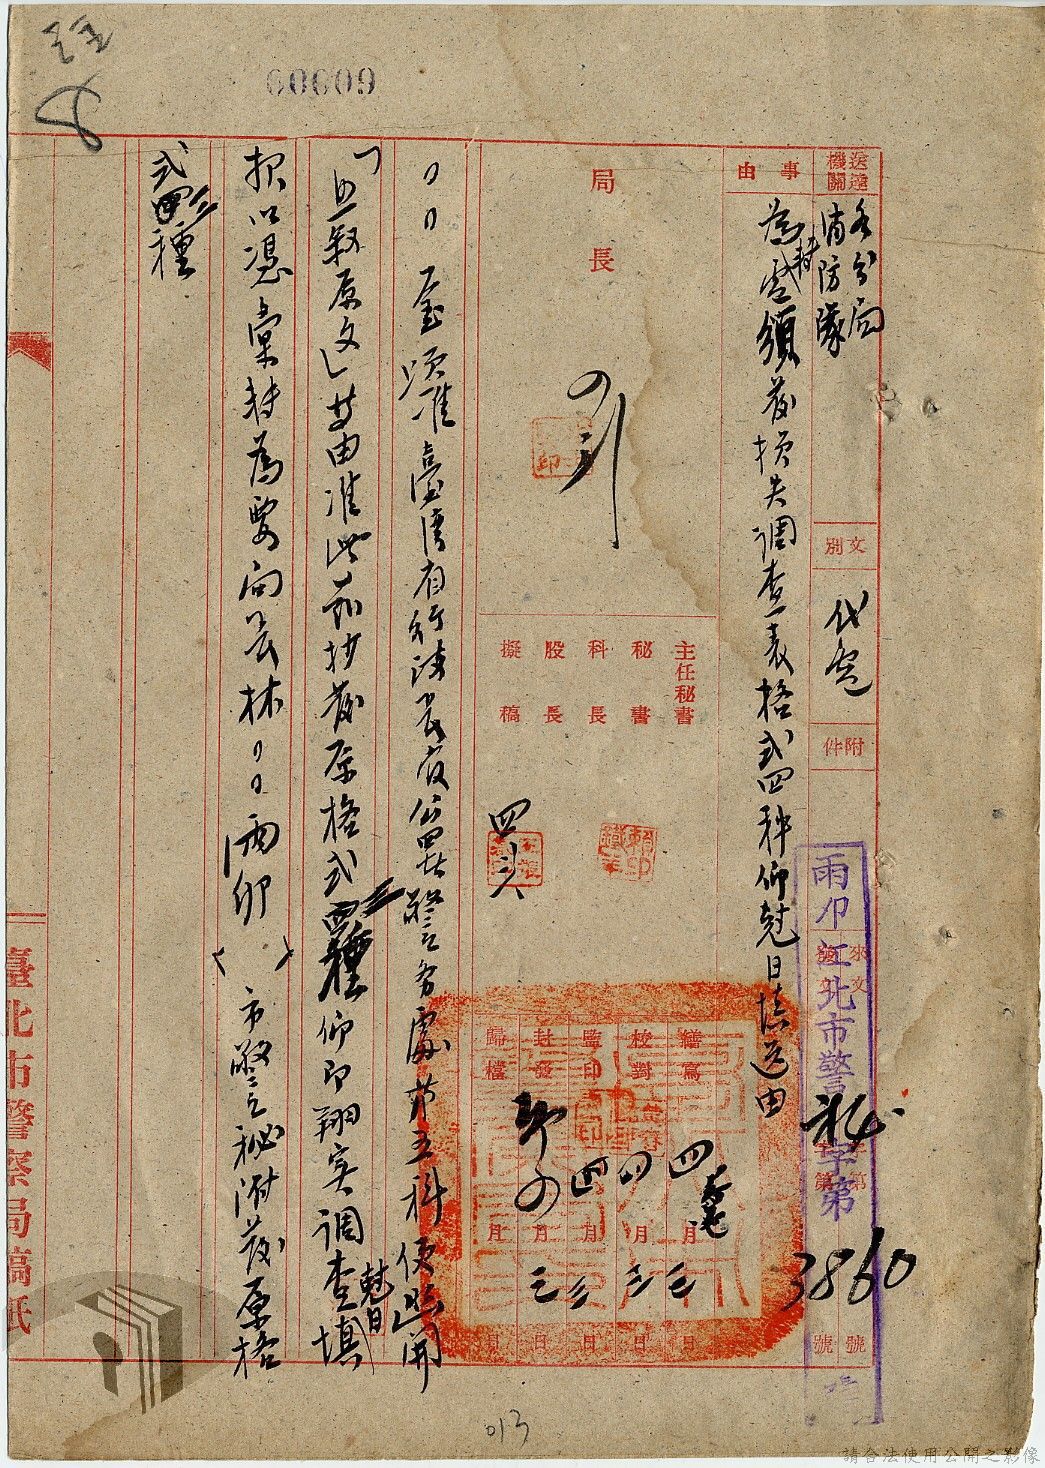 60609
送達機關
各分局
消防隊
事由
為轉頒發損失調查表格式四种仰尅日填送由
文別
代電
附件
來文
雨卯江北市警秘字第3860號
字第
號
局長
主任秘書
秘書
科長
股長
擬稿
繕寫
校對
監印
封發
歸檔
月
日
案頃准臺灣省行政長官公署警務處第五科便箋開
「照叙原文」等由准此茲抄發原格式三種仰即翔實調查尅日填
報以憑彙轉為要局長林
雨卯
市警秘附發原格
式三種
臺北市警察局稿紙
013
請合法使用公開之影像